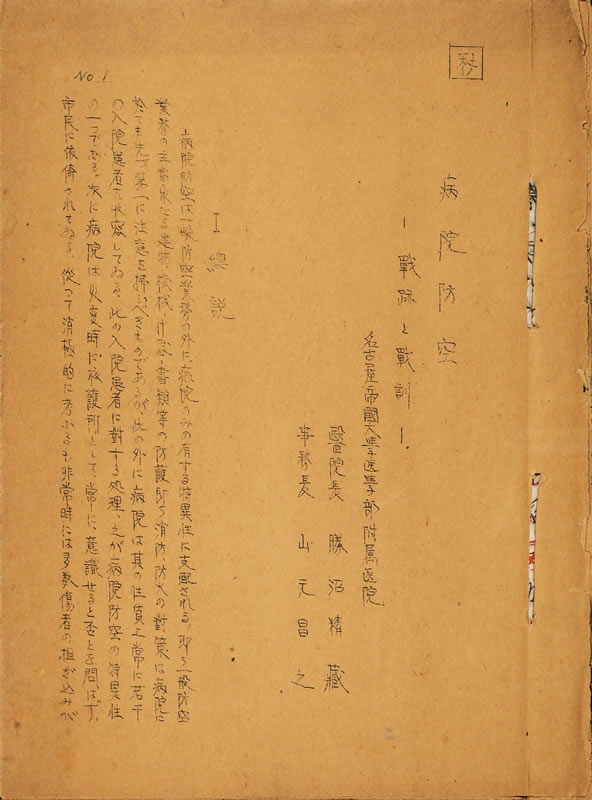 秘
病院防空
―戰跡と戰訓―
名古屋帝國大學医學部附屬医院
醫院長 勝沼精藏
事務長 山元昌之
I 總説
病院防空は一般防空業務の外に病院のみの有する特異性に支配される。即ち一般防空
業務の主對象になる建物・機械・什器・書類等の防護即ち消防、防火の對策は病院に
於ても先づ第一に注意を拂ふべきものであるが、此の外に病院は其の性質上常に若干
の入院患者を収容してゐる。此の入院患者に對する処理、之が病院防空の特異性
の一つである。次に病院は事変時に救護所として常に、意識せると否とを問はず、
市民に依倚されてゐる。從つて消極的に考ふるも非常時には多数傷者の担ぎ込みが
No.1